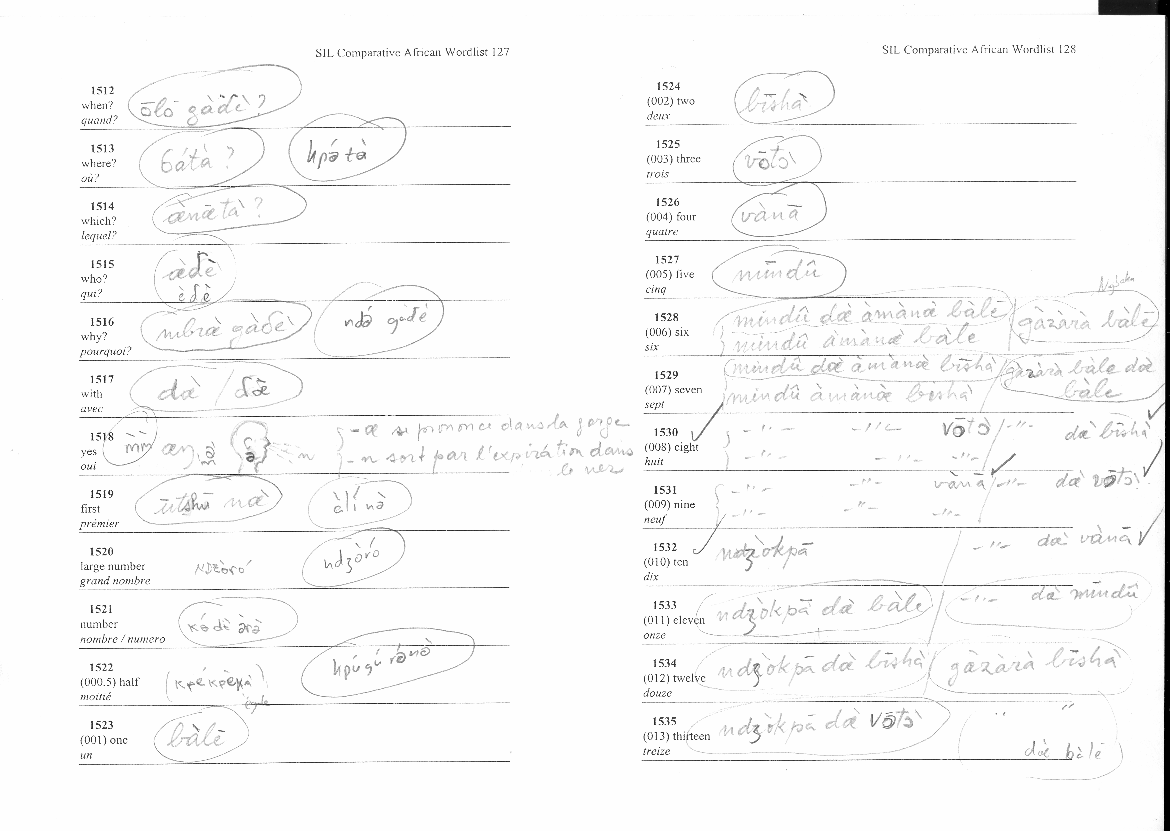 SIL Comparative African Wordlist 127
1512
when?
quand?
ōlō gàɗè ?
1513
where?
où?
ɓátà ?
kpə́tà
1514
which?
lequel?
ænætà ?
1515
who?
qui?
æ̀ɗè
èɗè
1516
why?
pourquoi?
gàɗè
ndə́ gəɗè
1517
with
avec
dæ̀ / ɗǣ
1518
yes
oui
m̀m̀
} - æ se prononce dans la gorge
- n sort par l'expiration dans
le nez
1519
first
prémier
ūtshū næ̀
àlínə̀
1520
large number
grand nombre
NDzòró
ndʒòró
1521
number
nombre / numero
kódè
1522
(000.5) half
moitié
1523
(001) one
un
bàlē
SIL Comparative African Wordlist 128
1524
(002) two
deux
bīshà
1525
(003) three
trois
vōtɔ̀
1526
(004) four
quatre
vànā
1527
(005) five
cinq
mīndû
1528
(006) six
six
mīndû dæ̀ àmànæ̀ bàlē
mīndû àmànæ̀ bàlē
gàzàrà bàlē
1529
(007) seven
sept
mīndû dæ̀ àmànæ̀ bīshà
mīndû àmànæ̀ bīshà
gàzàrà bàlē dæ̀
bàlē
1530
(008) eight
huit
- " - - " - vōtɔ̀ / - " - dæ̀ bīshà
- " - - " - - " -
1531
(009) nine
neuf
- " - - " - vànā / - " - dæ̀ vōtɔ̀
- " - - " - - " -
1532
(010) ten
dix
ndʒòkpā
- " - dæ̀ vànā
1533
(011) eleven
onze
ndʒòkpā dæ̀ bàlē
- " - dæ̀ mīndû
1534
(012) twelve
douze
ndʒòkpā dæ̀ bīshà
gàzàrà bīshà
1535
(013) thirteen
treize
ndʒòkpā dæ̀ vōtɔ̀
" "
dæ̀ bàlē